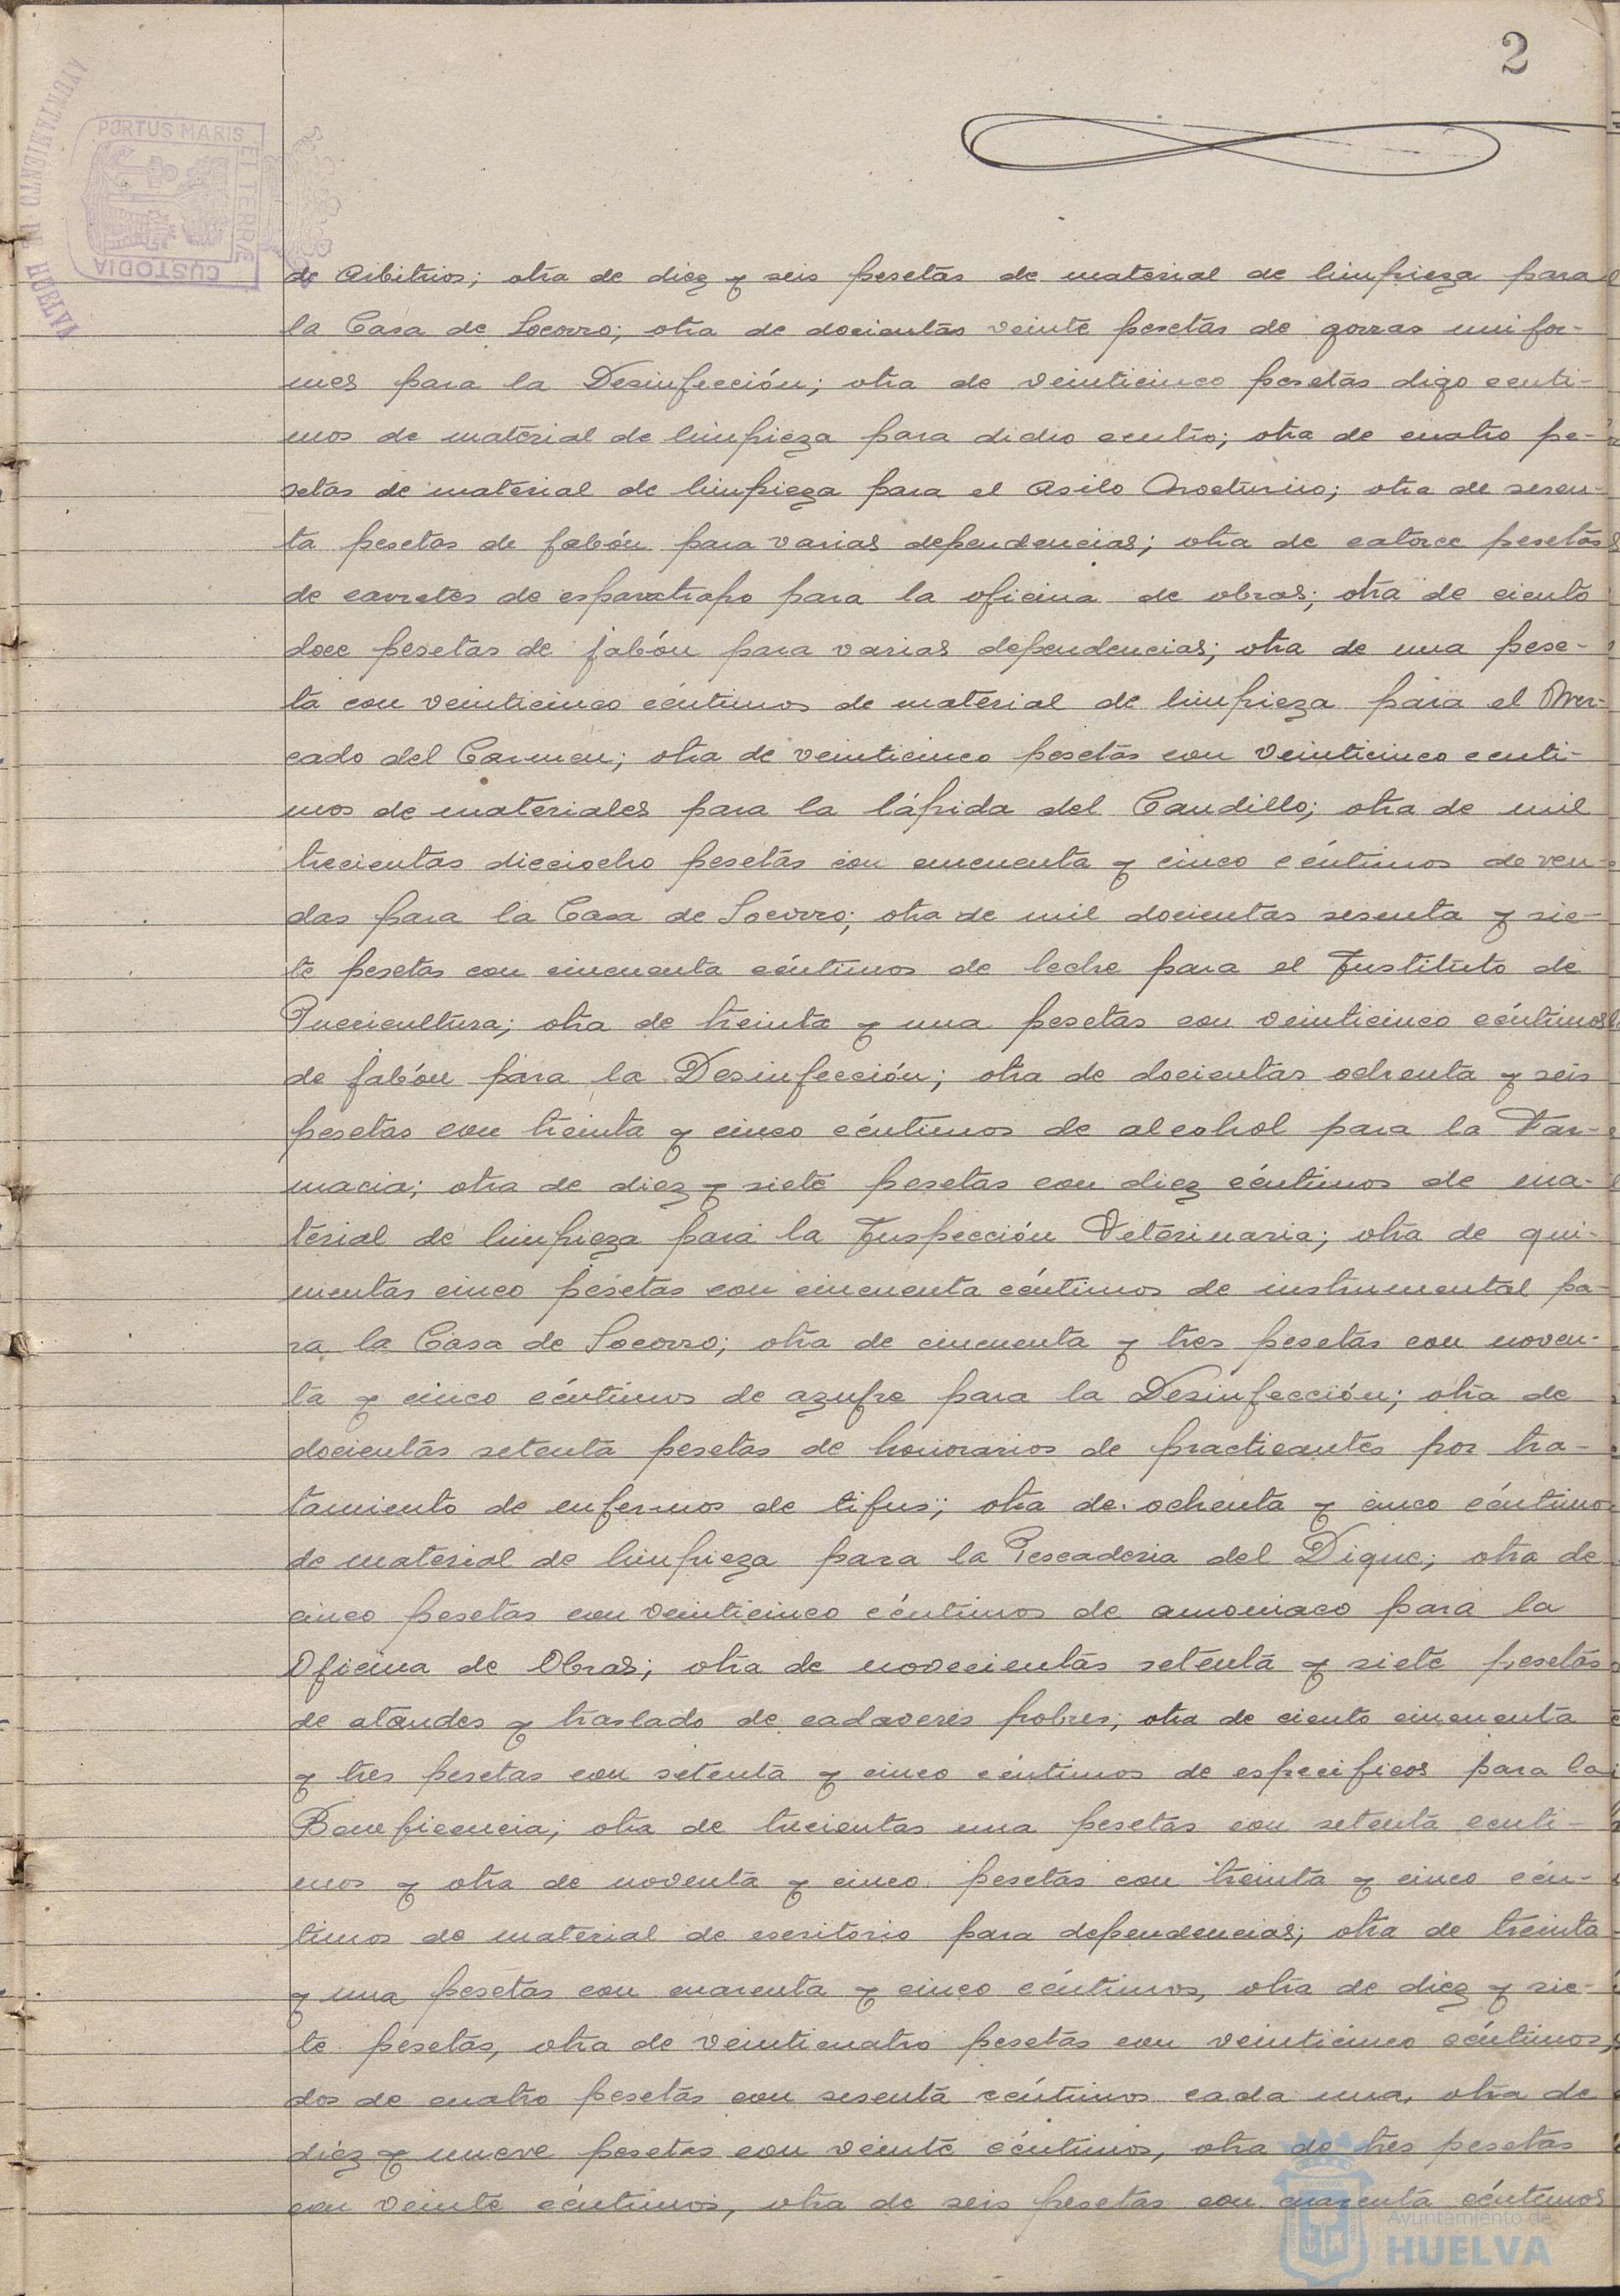 2
AYUNTAMIENTO DE HUELVA
PORTUS MARIS
ET TERRÆ
CUSTODIA
de Arbitrios; otra de diez y seis pesetas de material de limpieza para
la Casa de Socorro; otra de docientas veinte pesetas de gorras unifor-
mes para la Desinfección; otra de veinticinco pesetas digo centi-
mos de material de limpieza para dicho centro; otra de cuatro pe-
setas de material de limpieza para el Asilo Nocturno; otra de sesen-
ta pesetas de jabón para varias dependencias; otra de catorce pesetas
de carretes de esparatrapo para la oficina de obras; otra de ciento
doce pesetas de jabón para varias dependencias; otra de una pese-
ta con veinticinco céntimos de material de limpieza para el Mer-
cado del Carmen; otra de veinticinco pesetas con veinticinco centi-
mos de materiales para la lápida del Caudillo; otra de mil
trecientas dieciocho pesetas con cincuenta y cinco céntimos de ven-
das para la Casa de Socorro; otra de mil docientas sesenta y sie-
te pesetas con cincuenta céntimos de leche para el Instituto de
Puericultura; otra de treinta y una pesetas con veinticinco céntimos
de jabón para la Desinfección; otra de docientas ochenta y seis
pesetas con treinta y cinco céntimos de alcohol para la Far-
macia; otra de diez y siete pesetas con diez céntimos de ma-
terial de limpieza para la Inspección Veterinaria; otra de qui-
nientas cinco pesetas con cincuenta céntimos de instrumental pa-
ra la Casa de Socorro; otra de cincuenta y tres pesetas con noven-
ta y cinco céntimos de azufre para la Desinfección; otra de
docientas setenta pesetas de honorarios de practicantes por tra-
tamiento de enfermos de tifus; otra de ochenta y cinco céntimos
de material de limpieza para la Pescaderia del Dique; otra de
cinco pesetas con veinticinco céntimos de amoniaco para la
Oficina de Obras; otra de novecientas setenta y siete pesetas
de ataudes y traslado de cadaveres pobres; otra de ciento cincuenta
y tres pesetas con setenta y cinco céntimos de especificos para la
Beneficencia; otra de trecientas una pesetas con setenta centi-
mos y otra de noventa y cinco pesetas con treinta y cinco cén-
timos de material de escritorio para dependencias; otra de treinta
y una pesetas con cuarenta y cinco céntimos, otra de diez y sie-
te pesetas, otra de veinticuatro pesetas con veinticinco céntimos,
dos de cuatro pesetas con sesenta céntimos cada una, otra de
diez y nueve pesetas con veinte céntimos, otra de tres pesetas
con veinte céntimos, otra de seis pesetas con cuarenta céntimos
Ayuntamiento de
HUELVA